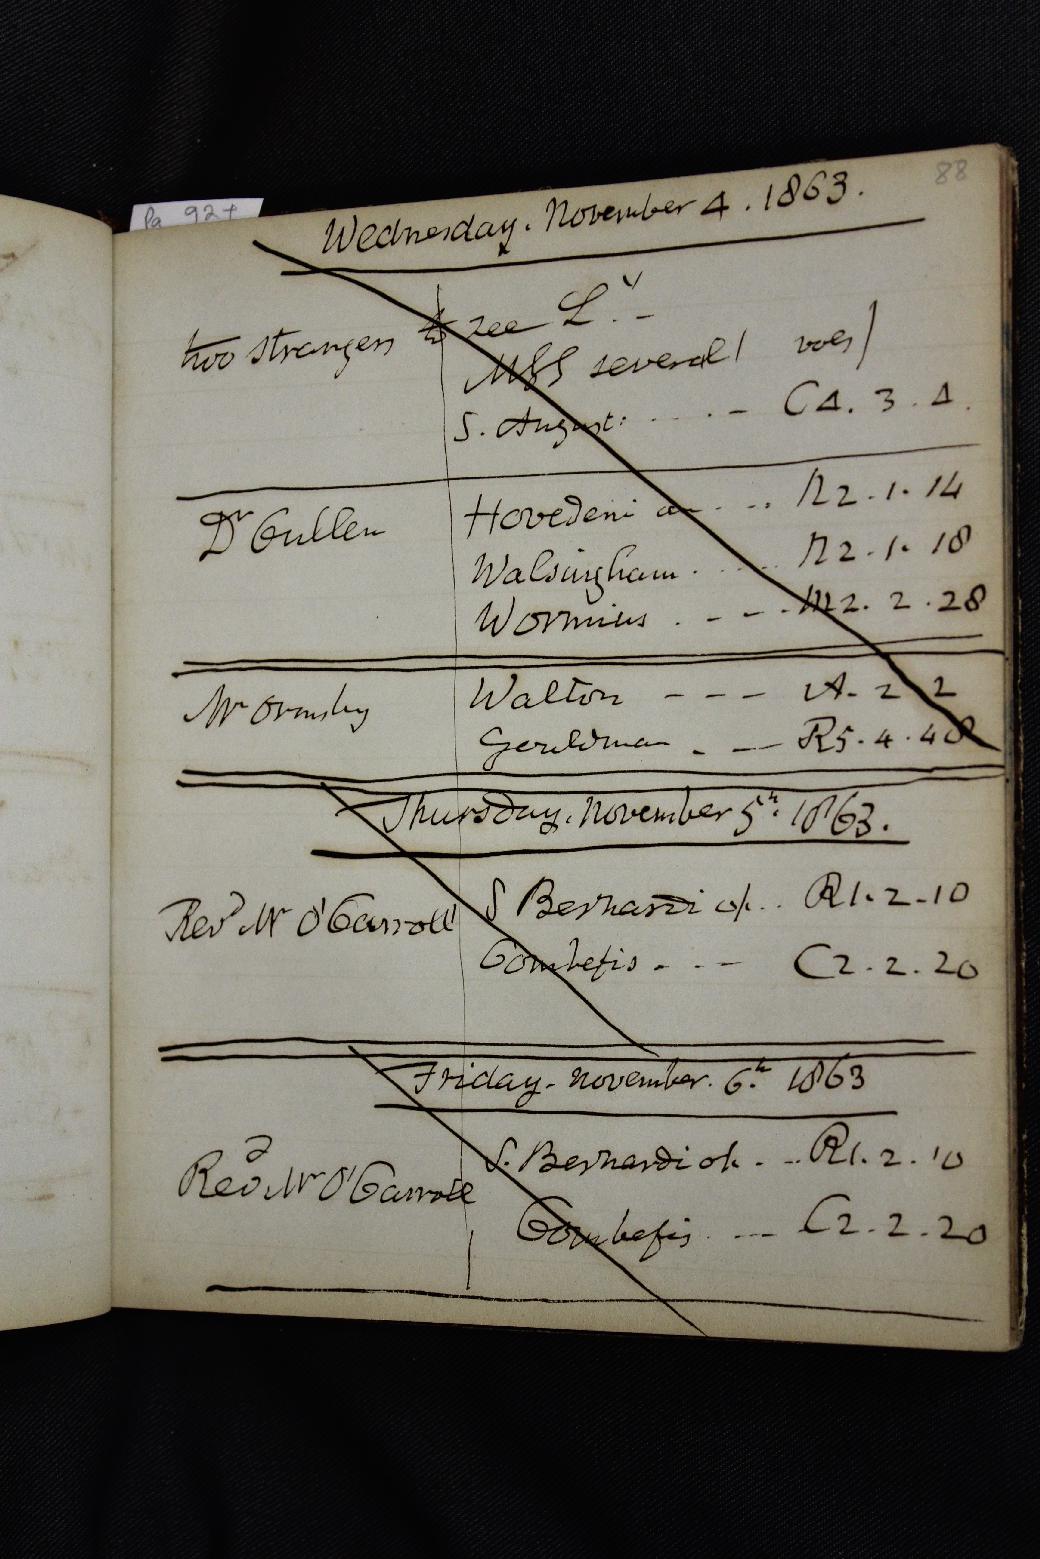 88
Pa 92+
Wednesday. November 4. 1863.
two strangers to see L.y -
MSS several / vols /
S. August: - - - - C4. 3. 4.
Dr Cullen Hovedeni an - - - N2. 1. 14
Walsingham - - - N2. 1. 18
Wormius. - - - M2. 2. 28
Mr Ormsby Walton - - - A. 2 2
Gouldman - - - R5. 4. 48
Thursday. November 5th. 1863.
Revd Mr O'Carroll S Bernardi op.. R1. 2. 10
Combefis - - - C2. 2. 20
Friday. November. 6.th 1863
Revd Mr O'Carroll S. Bernardi op. - - R1. 2. 10
Combefis - - - C2. 2. 20